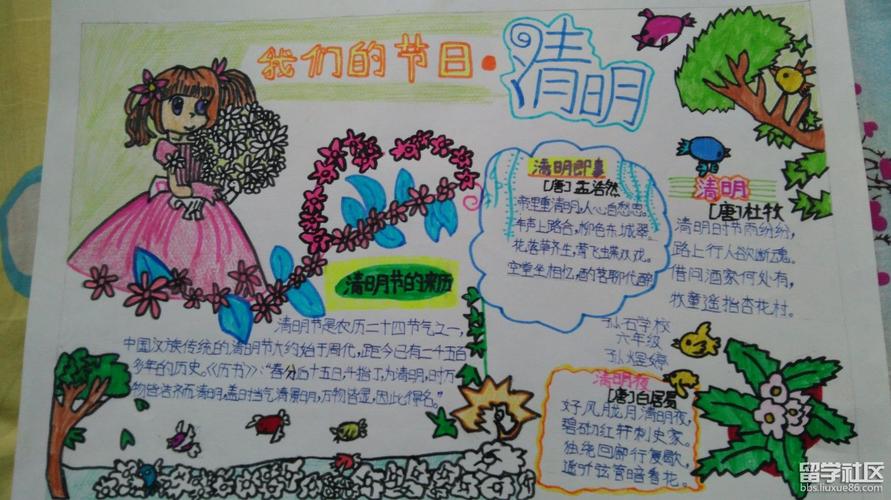 我们的节日·清明
清明节的来历
清明节是农历二十四节气之一，
中国汉族传统的清明节大约始于周代，距今已有二千五百
多年的历史。《历书》：“春分后十五日，斗指丁，为清明，时万
物皆洁齐而清明，盖时当气清景明，万物皆显，因此得名。”
清明即事
[唐]孟浩然
帝里重清明，人心自愁思。
车声上路合，柳色东城翠。
花落草齐生，莺飞蝶双戏。
空堂坐相忆，酌茗聊代醉
清明
[唐]杜牧
清明时节雨纷纷，
路上行人欲断魂。
借问酒家何处有，
牧童遥指杏花村。
孙石学校
六年级
孙煜婷
清明夜
[唐]白居易
好风胧月清明夜，
碧砌红轩刺史家。
独绕回廊行复歇，
遥听弦管暗看花。
留学社区
bbs.liuxue86.com